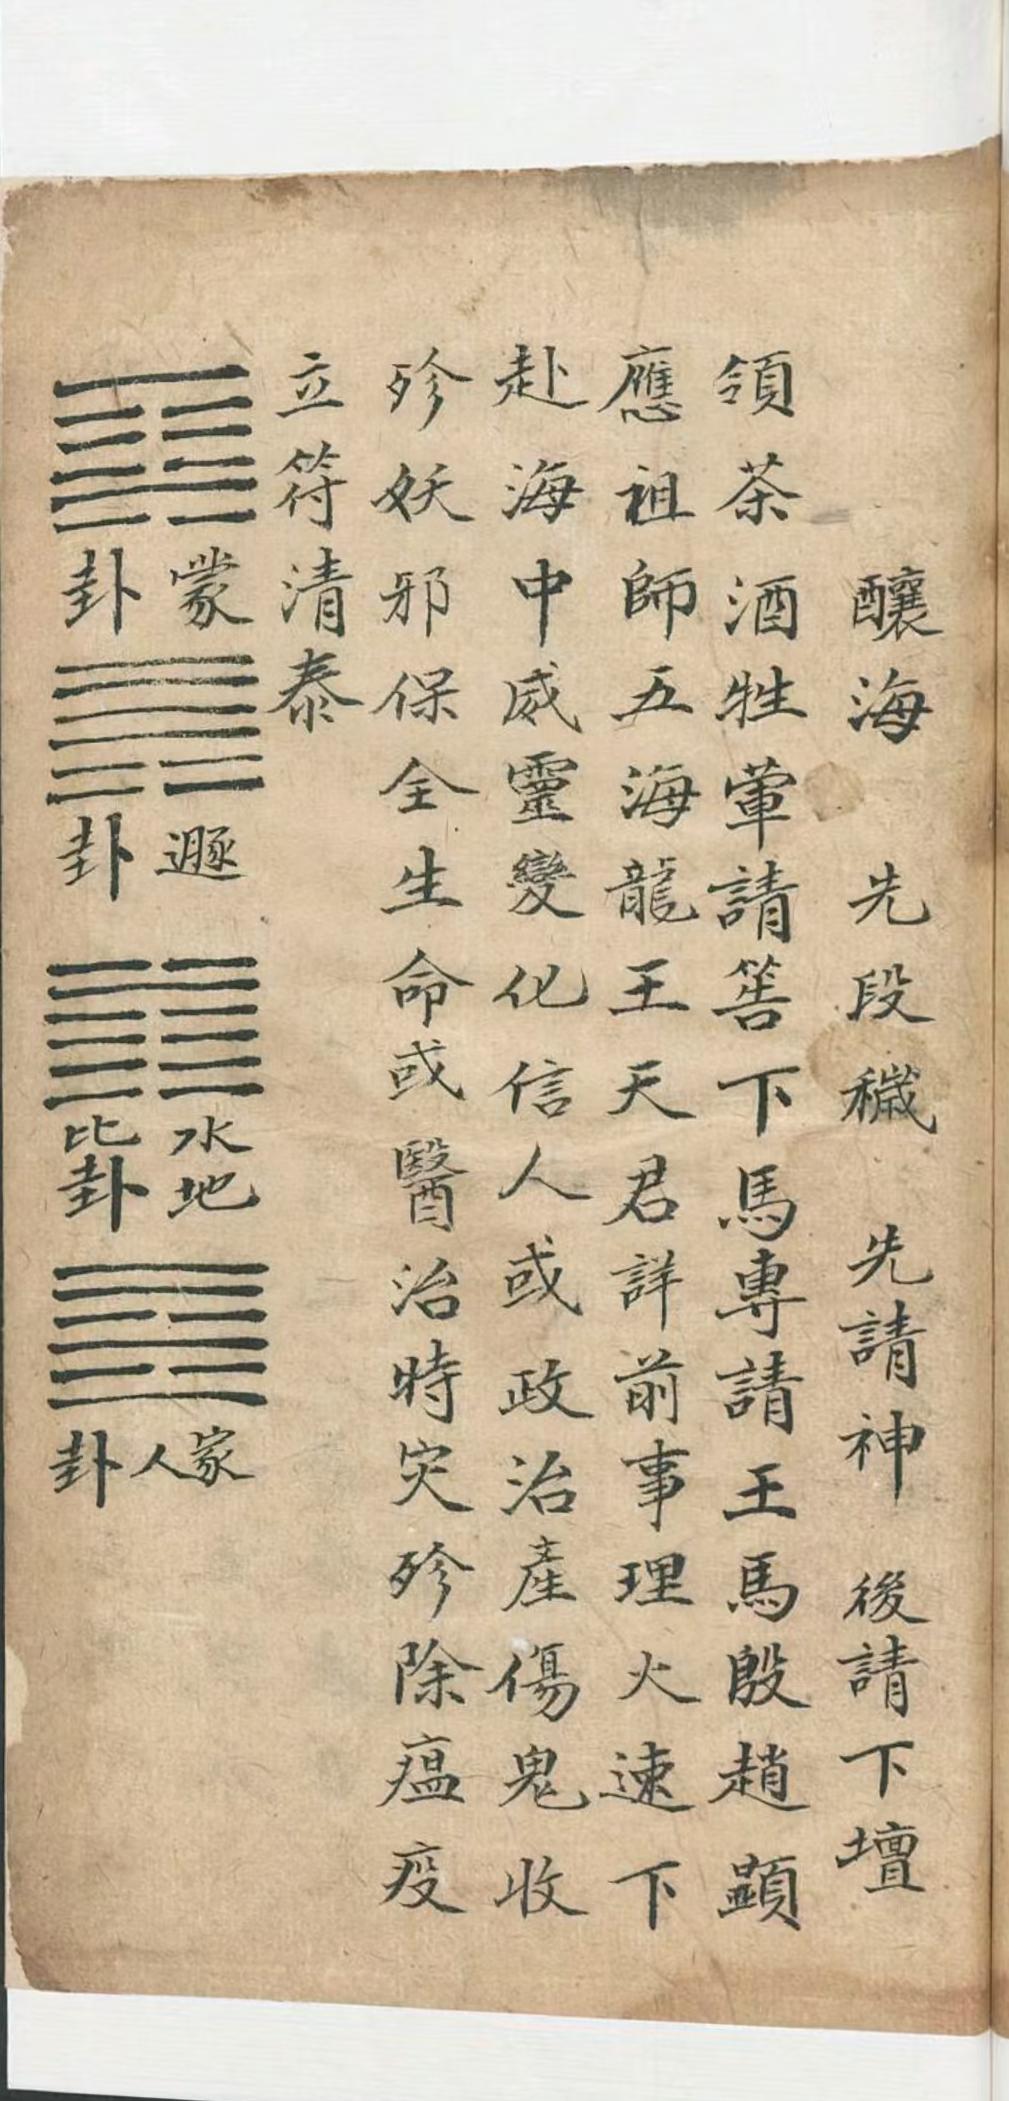 釀海 先段穢 先請神 後請下壇
領茶酒牲葷請筶下馬專請王馬殷趙顕
應祖師五海龍王天君詳前事理火速下
赴海中威靈變化信人或政治產傷鬼收
殄妖邪保全生命或醫治時灾殄除瘟疫
立符清泰
蒙卦
遯卦
水地比卦
家人卦